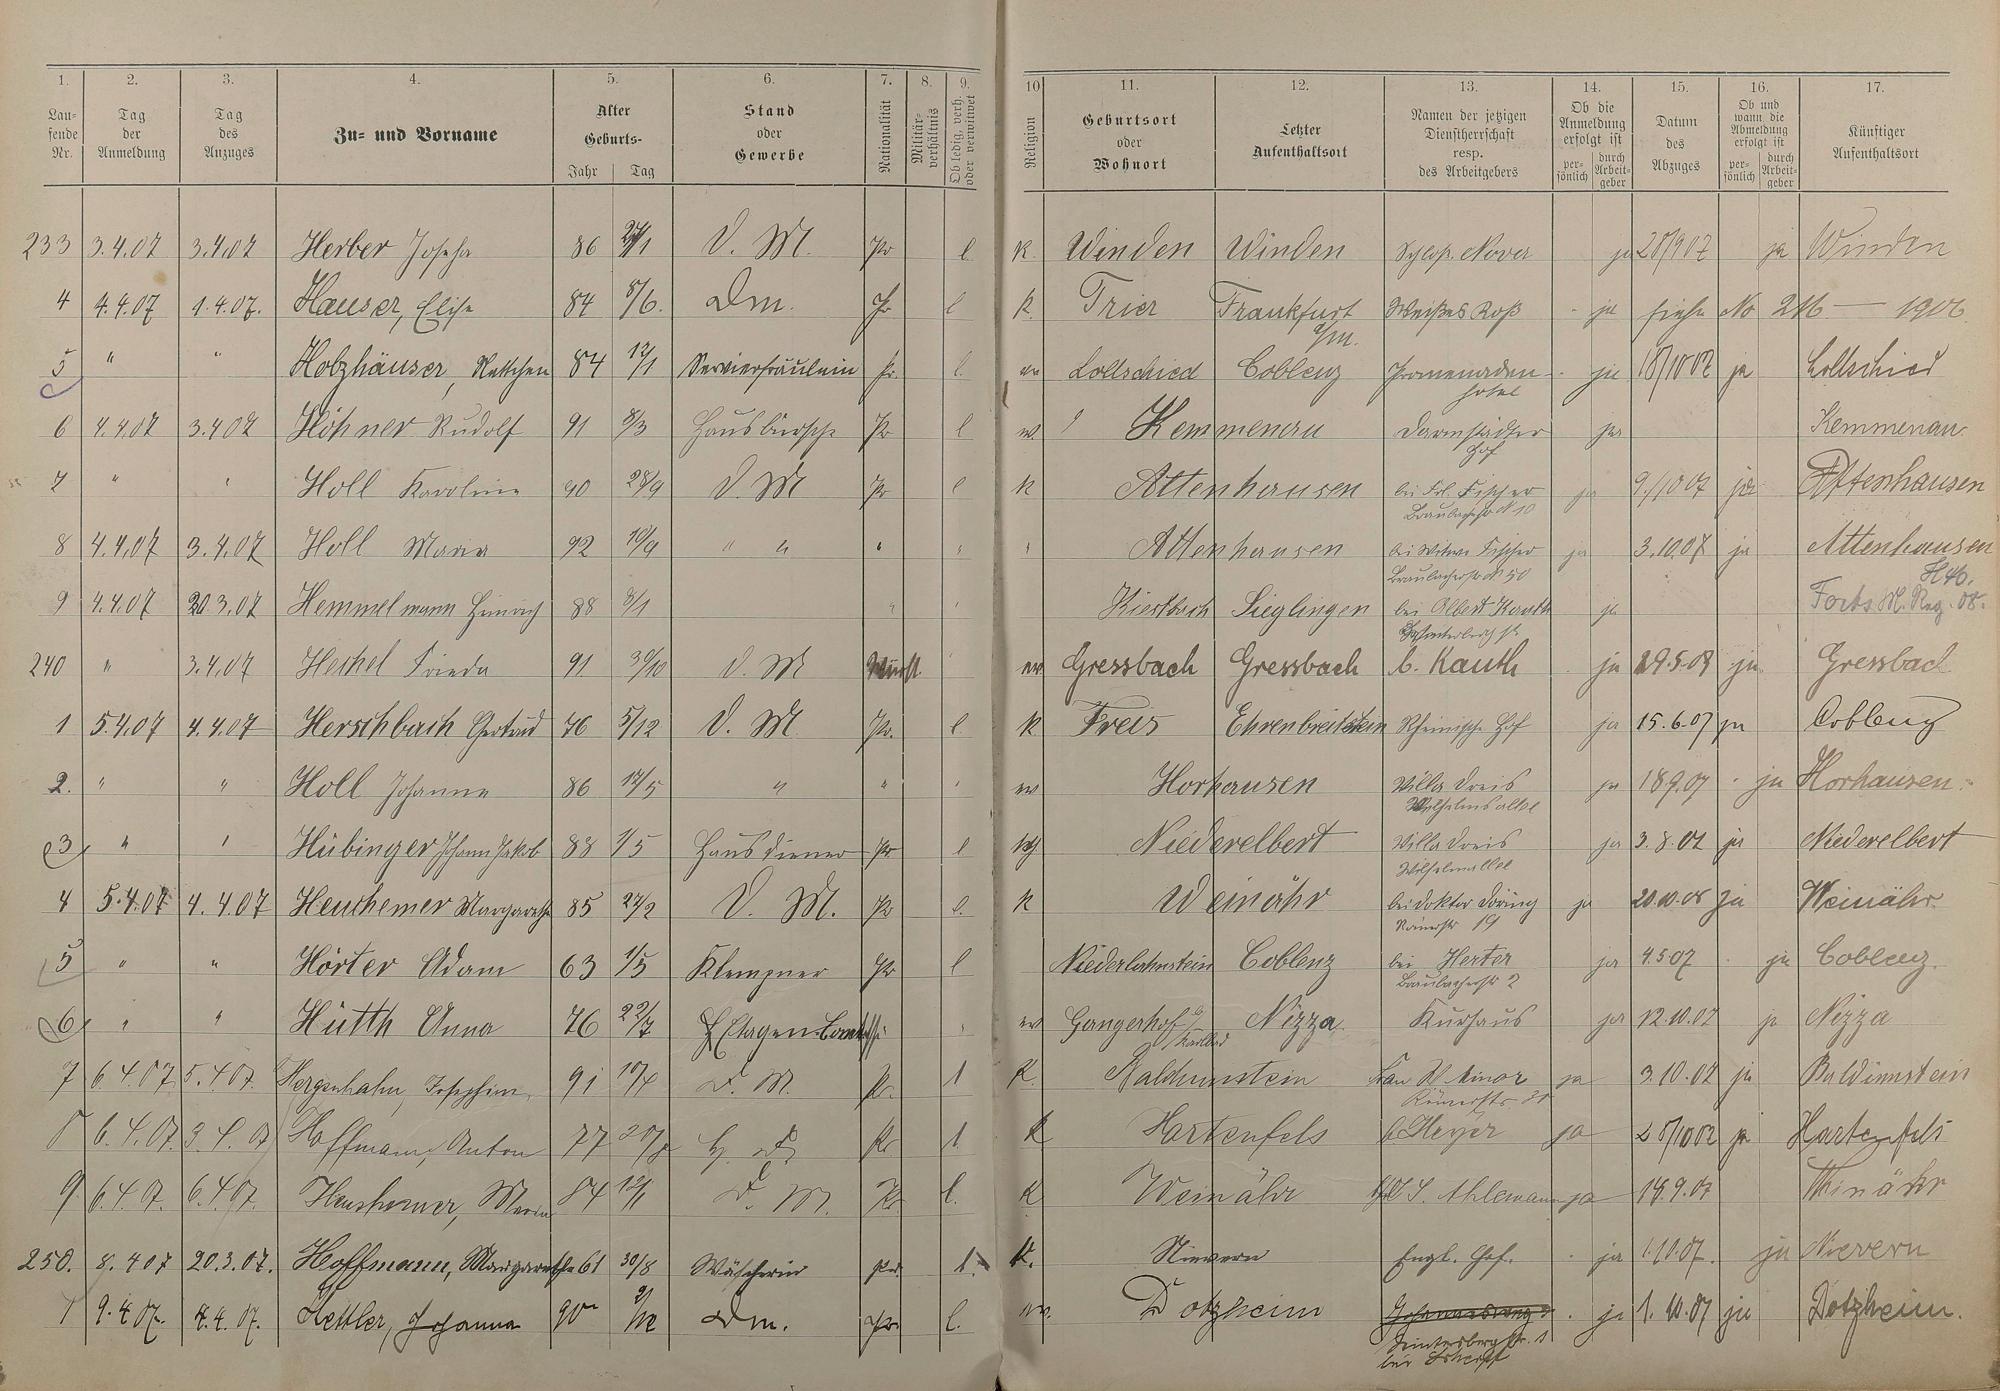 1. 2. 3. 4. 5. 6. 7. 8. 9. 10 11. 12. 13. 14. 15. 16. 17.
Lau-
fende
Nr.
Tag
der
Anmeldung
Tag
des
Anzuges
Zu- und Vorname
Alter
Geburts-
Jahr Tag
Stand
oder
Gewerbe
Nationalität
Militär-
verhältnis
Ob ledig, verh.
oder verwitwet
Religion
Geburtsort
oder
Wohnort
Letzter
Aufenthaltsort
Namen der jetzigen
Dienstherrschaft
resp.
des Arbeitgebers
Ob die
Anmeldung
erfolgt ist
per-
sönlich
durch
Arbeit-
geber
Datum
des
Abzuges
Ob und
wann die
Abmeldung
erfolgt ist
per-
sönlich
durch
Arbeit-
geber
Künftiger
Aufenthaltsort
233 3.4.07 3.4.07 Herber Josefa 86 D. M. Pr l. K. Winden Winden ja 28/9 07 ja Winden
4 4.4.07 1.4.07. Hauser, Elise 84 8/6. Dm. Pr l K. Trier Frankfurt a/M. Weißes Roß - ja siehe No 216 — 1906
5 " " Holzhäuser, Nettchen 84 12/1 Servierfräulein Pr. l. ev Lollschied Coblenz Promenaden- ja 18/10 07 ja Lollschied
hotel
6 4.4.07 3.4.07 Höhner Rudolf 91 8/3 Hausbursche Pr l ev. Kemmenau Darmstädter ja Kemmenau.
Hof
7 " " Holl Karoline 90 28/9 D. M Pr l K Attenhausen bei Frl. Fischer ja 9/10 07 ja Attenhausen
Braubacherstr N 10
8 4.4.07 3.4.07 Holl Maria 92 10/9 " " " " " Attenhausen bei Witwe Fischer ja 3.10.07 ja Attenhausen
Braubacherstr N 50
9 4.4.07 20.3.07 Hemmelmann Heinrich 88 8/1 " " Sieglingen bei Albert Kauth ja
240 " 3.4.07 Frieda 91 30/10 D. M " ev Gressbach Gressbach b. Kauth . ja 29.5.07 ja Gressbach
1 5.4.07 4.4.07 Herschbach Gertrud 76 5/12 D. M. Pr. l K Freis Ehrenbreitstein Rheinische Hof ja 15.6.07 ja Coblenz
2. " " Holl Johanna 86 12/5 " " " ev Horhausen Villa Dreis ja 18 9.07 . ja Horhausen
Wilhelmsallee
3 " " Hübinger Johann Jakob 88 1/5 Hausdiener Pr l Niederelbert Villa Dreis ja 3.8.07 ja Niederelbert
Wilhelmsallee
4 5.4.07 4.4.07 Heuchemer Margarethe 85 27/2 D. M. Pr l. K Weinähr bei Doktor Döring ja ja Weinähr
Römerstr 19
5 " " Hörter Adam 63 1/5 Klempner Pr l Niederlahnstein Coblenz bei Herter ja 4.5 07 . ja Coblenz.
Braubacherstr 2
6 " " Hütth Anna 76 22/7 ev Gangerhof b/ Karlsbad Nizza. Kurhaus ja 12.10.07 ja Nizza
7 6.4.07 5.4.07. Hergenhahn, Josephine 91 10/4 D. M. Pr. l K. Balduinstein Frau W Minor ja 3.10.07 ja Balduinstein
8 6.4.07. 3.4.07 Hoffmann, Anton 77 H. D. Pr l K Hartenfels b. Heyer ja 28/10 07 ja Hartenfels
9 6.4.07. 6.4.07. Heuchemer, Maria 84 12/1 D. M. Pr. l. K Weinähr Ahlemann ja 14.9.07 Weinähr
250. 8.4 07 20.3.07. Hoffmann, Margarethe 61 30/8 Wäscherin Pr. l. K. Nievern Engl. Hof. . ja 1.10.07. ja Nievern
1 9.4.07. 4.4.07. Hettler, Johanna 90 Dm. Pr. l. ev. Dotzheim . ja 1.10.07 ja Dotzheim.
Wintersbergstr. 1